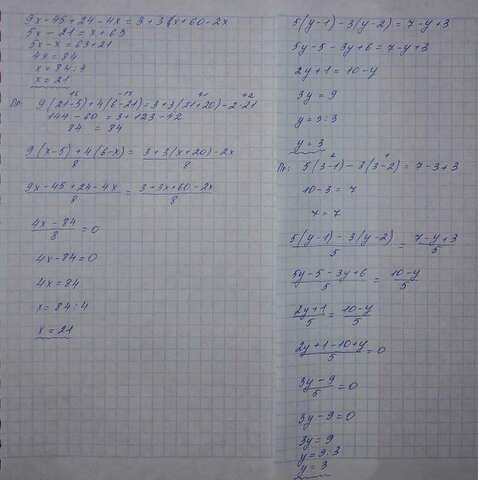 9x-45+24-4x=3+3x+60-2x
5x-21=x+63
5x-x=63+21
4x=84
x=84:4
x=21
Пр: 9(21-5)+4(6-21)=3+3(21+20)-2·21
144-60=3+123-42
84=84
9(x-5)+4(6-x)/8=3+3(x+20)-2x/8
9x-45+24-4x/8=3+3x+60-2x/8
4x-84/8=0
4x-84=0
4x=84
x=84:4
x=21
5(y-1)-3(y-2)=7-y+3
5y-5-3y+6=7-y+3
2y+1=10-y
3y=9
y=9:3
y=3
Пр: 5(3-1)-3(3-2)=7-3+3
10-3=7
7=7
5(y-1)-3(y-2)/5=7-y+3/5
5y-5-3y+6/5=10-y/5
2y+1/5=10-y/5
2y+1-10+y/5=0
3y-9/5=0
3y-9=0
3y=9
y=9:3
y=3